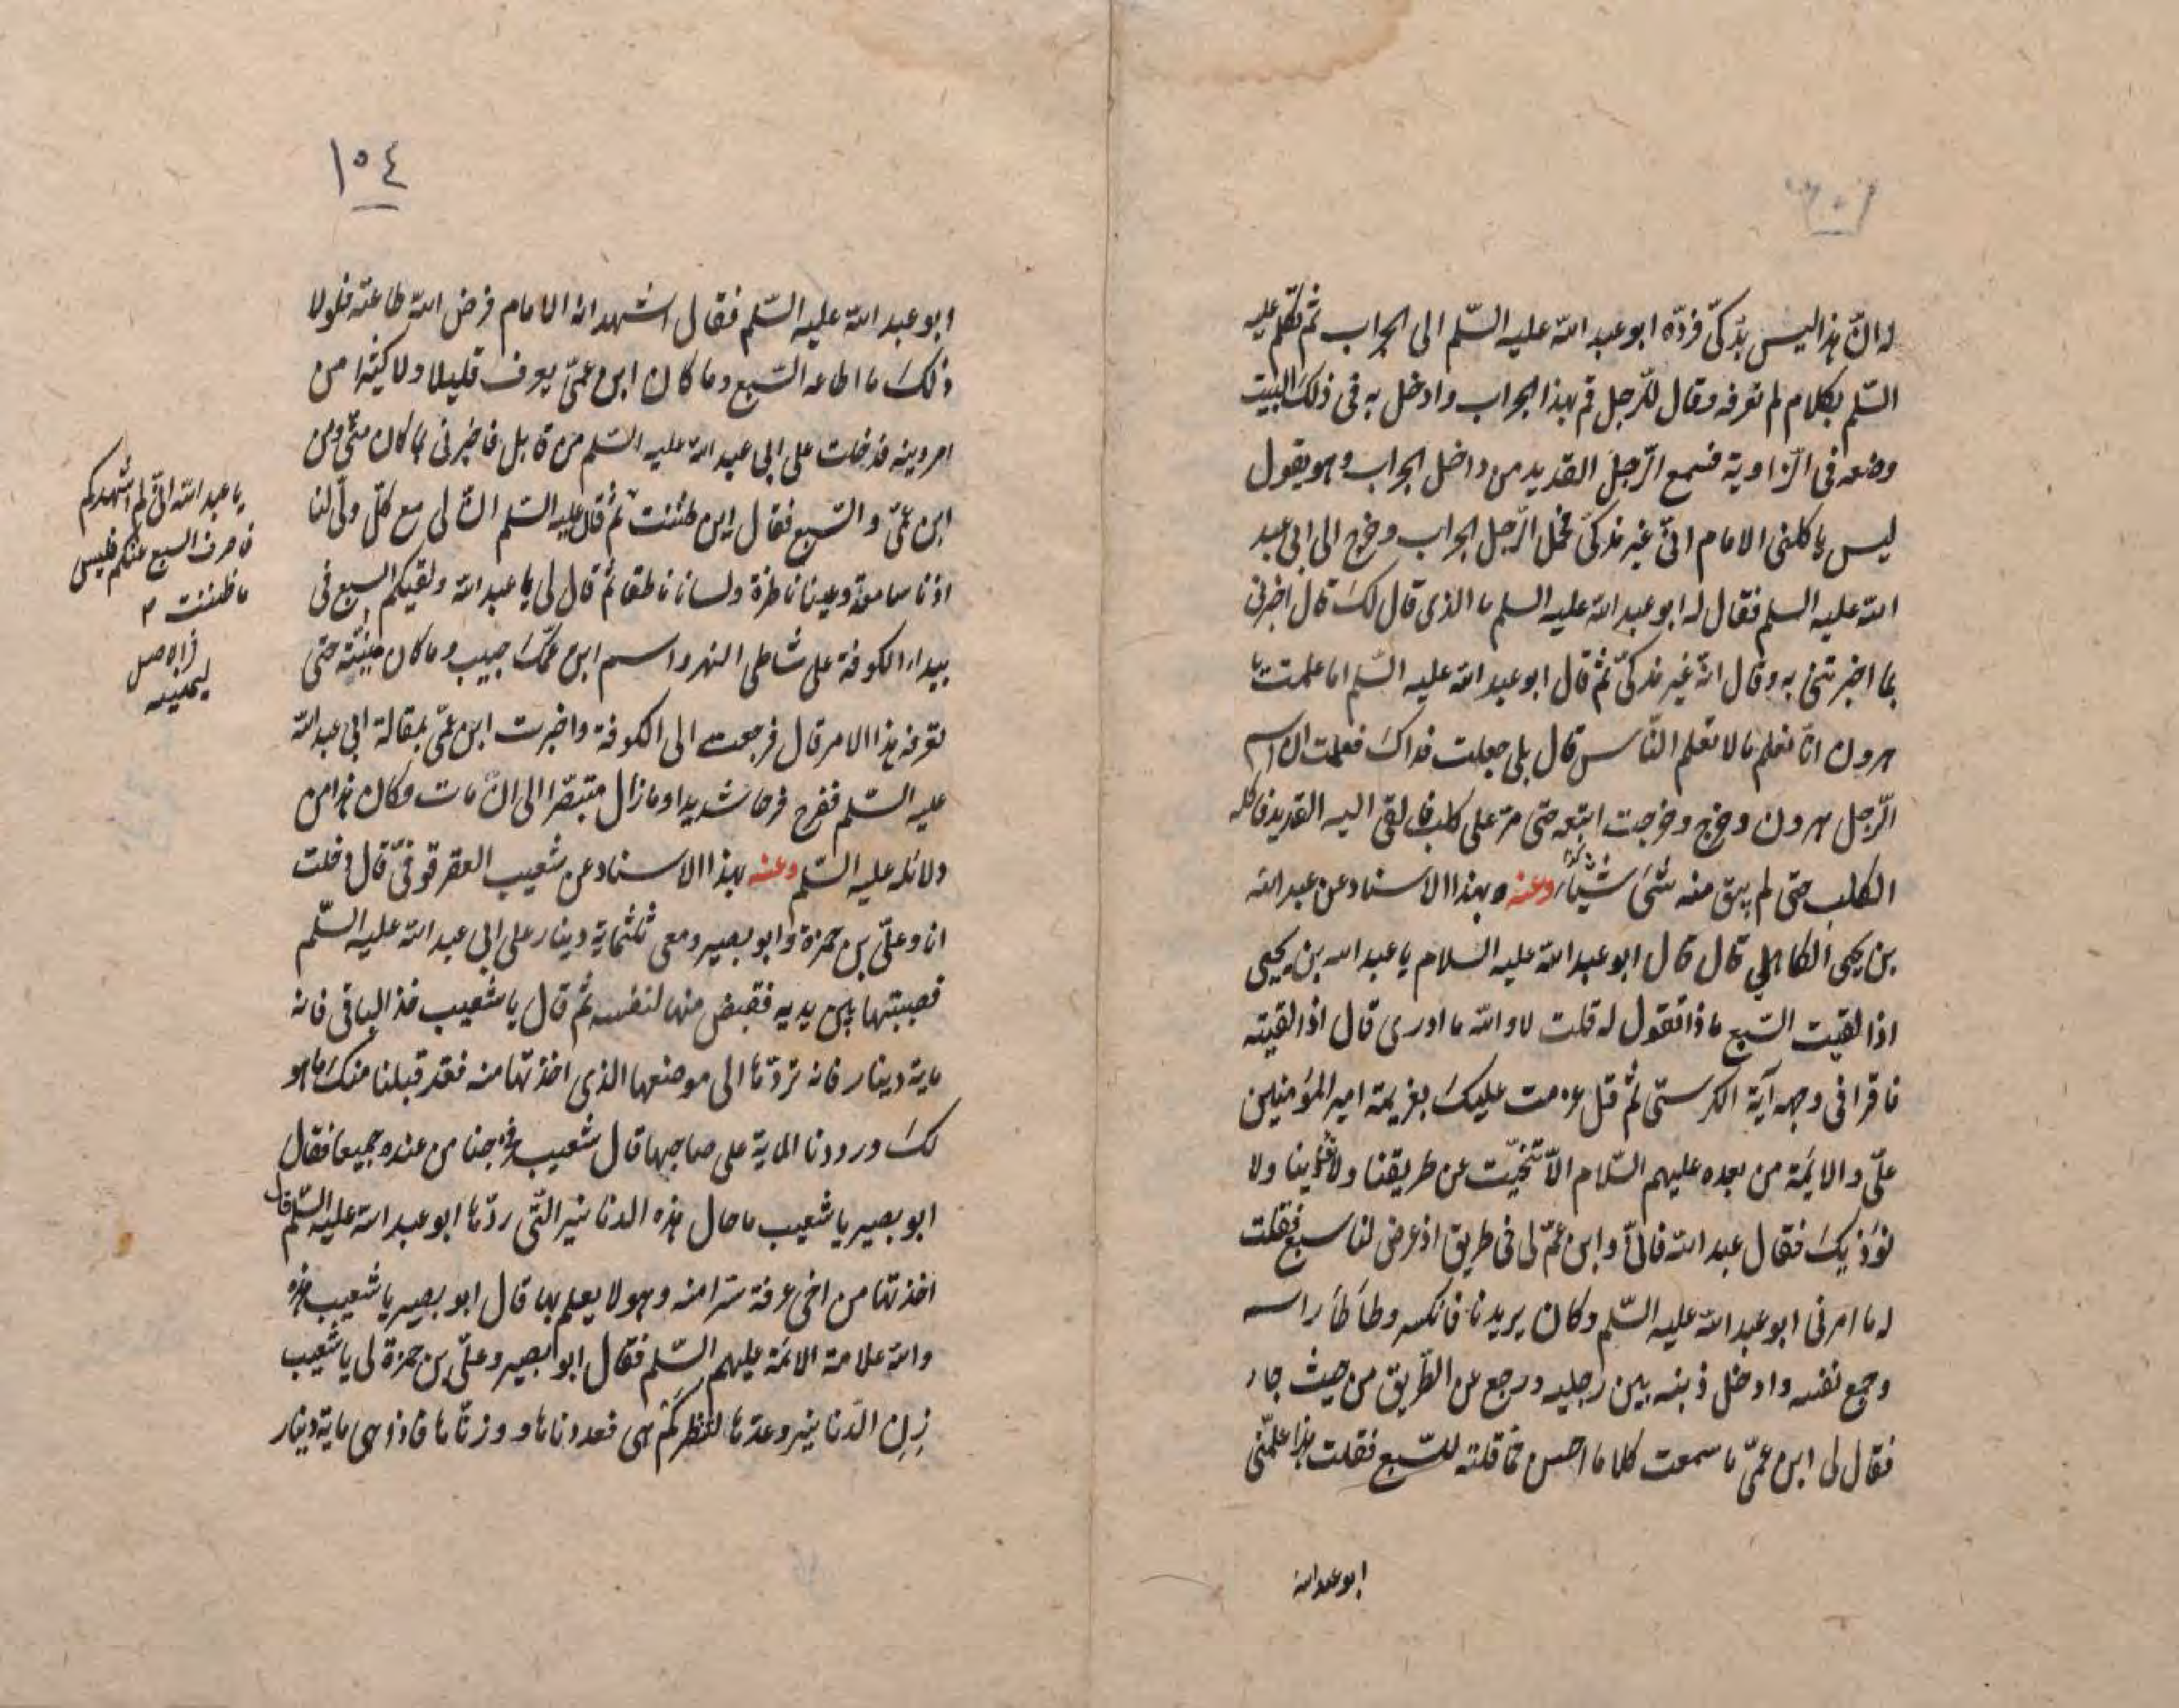 له ان هذا ليس بذكى فرده ابو عبد الله عليه السّلم الى الجراب ثم تكلم عليه
السّلم بكلام لم نعرفه وقال للرّجل قم بهذا الجراب وادخل به فى ذلك البيت
وضعه فى الزّاوية فسمع الرّجل القديد من داخل الجراب وهو يقول
ليس ياكلنى الامام انّى غير مذكّى فحمل الرّجل الجراب وخرج الى ابى عبد
الله عليه السلم فقال له ابو عبد الله عليه السلم ما الذى قال لك قال اخبرنى
بما اخبرتنى به وقال انّه غير مذكّى ثم قال ابو عبد الله عليه السّلم اما علمت يا
هرون انّا نعلم ما لا تعلم النّاس قال بلى جعلت فداك فعلمت ان اسم
الرّجل هرون وخرج وخرجت اتبعه حتى مرّ على كلب فالقى اليه القديد فاكله
الكلب حتى لم يبق منه شئ وعنه وبهذا الاسناد عن عبد الله
بن يحيى الكاهلي قال قال ابو عبد الله عليه السلام يا عبد الله بن يحيى
اذا لقيت السّبع ماذا تقول له قلت لا والله ما ادرى قال اذا لقيته
فاقرا فى وجهه آية الكرسىّ ثم قل عزمت عليك بعزيمة امير المؤمنين
علىّ والائمة من بعده عليهم السّلام الّا تنحّيت عن طريقنا ولا تؤذينا ولا
نؤذيك فقال عبد الله فانّى وابن عمّ لى فى طريق اذ عرض لنا سبع فقلت
له ما امرنى ابو عبد الله عليه السّلم وكان يريدنا فانكسه وطأطأ راسه
وجمع نفسه وادخل ذنبه بين رجليه ورجع عن الطّريق من حيث جاء
فقال لى ابن عمّى ما سمعت كلاما احسن مما قلته للسّبع فقلت هذا علمّنى
ابو عبد الله
١٥٤
ابو عبد الله عليه السّلم فقال اشهد انه الامام فرض الله طاعته فلولا
ذلك ما اطاعه السّبع وما كان ابن عمّى يعرف قليلا ولا كثيرا من
امر دينه فدخلت على ابى عبد الله عليه السّلم من قابل فاخبرنى بما كان منّى ومن
ابن عمّى والسّبع فقال اين ظننت ثم قال عليه السّلم انّ لى مع كلّ ولىّ لنا
اذنا سامعة وعينا ناظرة ولسانا ناطقا ثم قال لى يا عبد الله ولقيكم السبع فى
بيداء الكوفة على شاطى النهر واسم ابن عمّك حبيب وما كان حتى
تعرفه هذا الامر قال فرجعت الى الكوفة واخبرت ابن عمّى بمقالة ابى عبد الله
عليه السّلم ففرح فرحا شديدا وما زال متبصّرا الى ان مات وكان هذا من
دلائله عليه السّلم وعنه بهذا الاسناد عن شعيب العقرقوفىّ قال دخلت
انا وعلىّ بن حمزة وابو بصير ومعى ثلثماية دينار على ابى عبد الله عليه السّلم
فصببتها بين يديه فقبض منها لنفسه ثم قال يا شعيب خذ الباقى فانه
ماية دينار فانه تردّها الى موضعها الذى اخذتها منه فقد قبلنا منك ما هو
لك ورددنا الماية على صاحبها قال شعيب فخرجنا من عنده جميعا فقال
ابو بصير يا شعيب ما حال هذه الدنانير الّتى ردّها ابو عبد الله عليه السّلم قال
اخذتها من اخى عرفة سرا منه وهو لا يعلم بها قال ابو بصير يا شعيب هذه
والله علامة الائمة عليهم السّلم فقال ابو بصير وعلىّ بن حمزة لى يا شعيب
زِنِ الدّنانير وعدّها لننظر كم هى فعددناها ووزنّاها فاذا هى ماية دينار
يا عبد الله انّى لم اشهدكم
فاصرف السبع عنكم فليس
ما ظننت